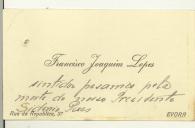 Francisco Joaquim Lopes
sentidos pesames pela
morte do nosso Presidente
Sidonio Paes
Rua da Republica, 37 EVORA